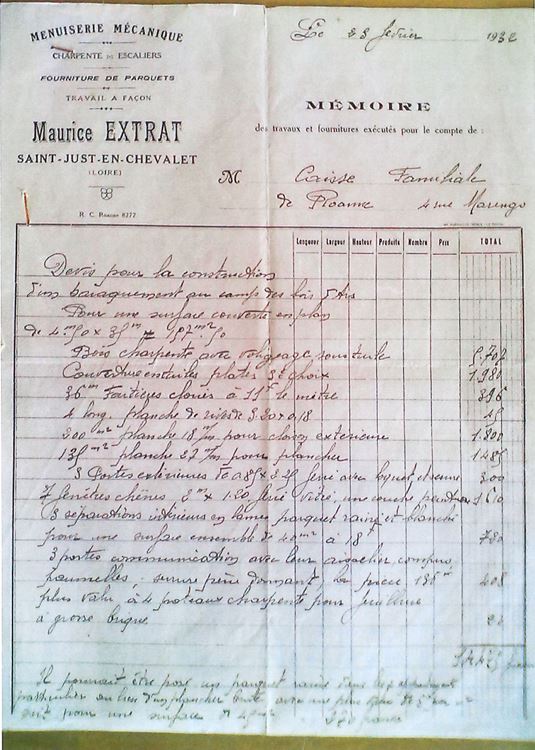 MENUISERIE MÉCANIQUE
CHARPENTE DE ESCALIERS
FOURNITURE DE PARQUETS
TRAVAIL A FAÇON
Maurice EXTRAT
SAINT-JUST-EN-CHEVALET
(LOIRE)
R. C. ROANNE 8277
Le 28 février 1932
MÉMOIRE
des travaux et fournitures exécutés pour le compte de :
M Caisse Familiale
de Roanne 4 rue Marengo
Longueur Largeur Hauteur Produits Nombre Prix TOTAL
Devis pour la construction
d'un baraquement au camp des bois
Pour une surface couverte en plan
de
Bois charpente avec voligeage sous tuile 5.702
Couverture en tuiles plates 3e choix 1.980
36m Faitières clouées à 11f le mètre 396
4 long. planche de rives de
200 m2 planche 18 m/m pour cloison extérieure 1.800
135 m2 planche 27 m/m pour plancher 1485
3 Portes extérieures ferré avec loquet et serrure 300
7 fenêtres chênes 2m x 1.20 ferré vitré, une couche peinture 1610
3 séparations intérieures en lames parquet rainé et blanchi
pour une surface ensemble de 40m2 à 18f 720
3 portes communication avec leur compris,
paumelles, serrure pène dormant, la pièce 136f 408
plus value à 4 poteaux charpente pour
a grosse brique
Il pourrait être posé un parquet rainé dans les
particulier au lieu d'un plancher brute avec une plus value de
soit pour une surface de